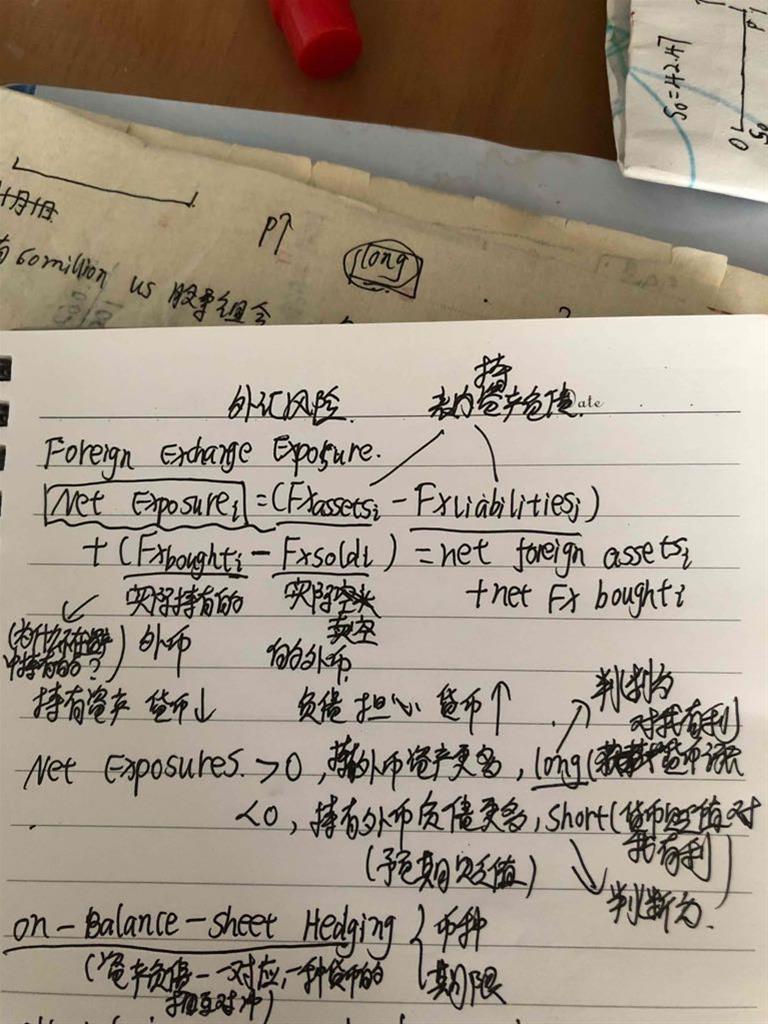 S0=42.47
P↑
long
有60million US 股票组合
外汇风险
持
表内资产负债
ate
Foreign Exchange Exposure.
Net Exposurei = (FXassetsi - FXliabilitiesi)
+ (FXboughti - FXsoldi) = net foreign assetsi
+ net FX boughti
实际持有的 实际
卖空
外币 的外币
持有资产 货币↓ 负债 担心 货币↑
判断为
对我有利
Net Exposures. >0, 持外币资产更多, long(
<0, 持有外币负债更多, short(货币贬值对
我有利)
(预期贬值) 判断为.
on-Balance-sheet Hedging { 币种
期限
(资产负债一一对应,一种货币的
相互对冲)